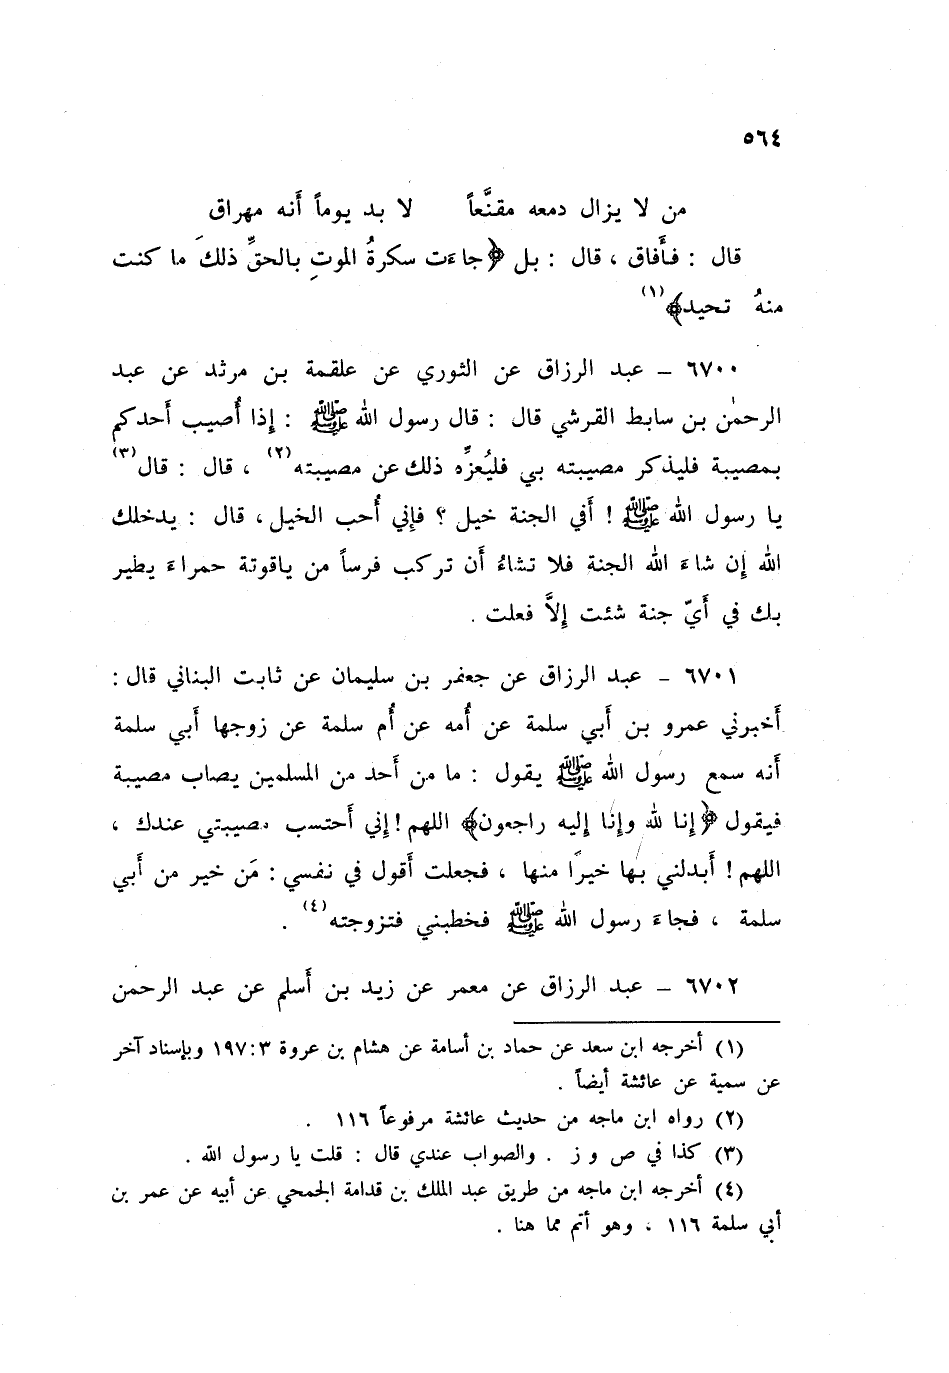 ٥٦٤
من لا يزال دمعه مقنَّعاً لا بد يوماً أنه مهراق
قال : فأَفاق ، قال : بل ﴿جاءَت سكرةُ الموتِ بالحقِّ ذلكَ ما كنت
منهُ تحيد﴾(١)
٦٧٠٠ – عبد الرزاق عن الثوري عن علقمة بن مرثد عن عبد
الرحمٰن بن سابط القرشي قال : قال رسول الله ﷺ : إِذا أُصيب أَحدكم
بمصيبة فليذكر مصيبته بي فليُعزِّه ذلك عن مصيبته(٢) ، قال : قال(٣)
يا رسول الله ﷺ ! أَفي الجنة خيل ؟ فإِني أُحب الخيل ، قال : يدخلك
الله إِن شاءَ الله الجنة فلا تشاءُ أَن تركب فرساً من ياقوتة حمراءَ يطير
بك في أَيّ جنة شئت إِلاَّ فعلت .
٦٧٠١ – عبد الرزاق عن جعفر بن سليمان عن ثابت البناني قال :
أَخبرني عمرو بن أَبي سلمة عن أُمه عن أُم سلمة عن زوجها أَبي سلمة
أَنه سمع رسول الله ﷺ يقول : ما من أَحد من المسلمين يصاب مصيبة
فيقول ﴿إِنا لله وإِنا إِليه راجعون﴾ اللهم ! إِني أَحتسب مصيبتي عندك ،
اللهم ! أَبدلني بها خيرًا منها ، فجعلت أَقول في نفسي : مَن خير من أَبي
سلمة ، فجاءَ رسول الله ﷺ فخطبني فتزوجته(٤) .
٦٧٠٢ – عبد الرزاق عن معمر عن زيد بن أَسلم عن عبد الرحمن
(١) أخرجه ابن سعد عن حماد بن أسامة عن هشام بن عروة ٣ : ١٩٧ وبإسناد آخر
عن سمية عن عائشة أيضاً .
(٢) رواه ابن ماجه من حديث عائشة مرفوعاً ١١٦ .
(٣) كذا في ص و ز . والصواب عندي قال : قلت يا رسول الله .
(٤) أخرجه ابن ماجه من طريق عبد الملك بن قدامة الجمحي عن أبيه عن عمر بن
أبي سلمة ١١٦ ، وهو أتم مما هنا .